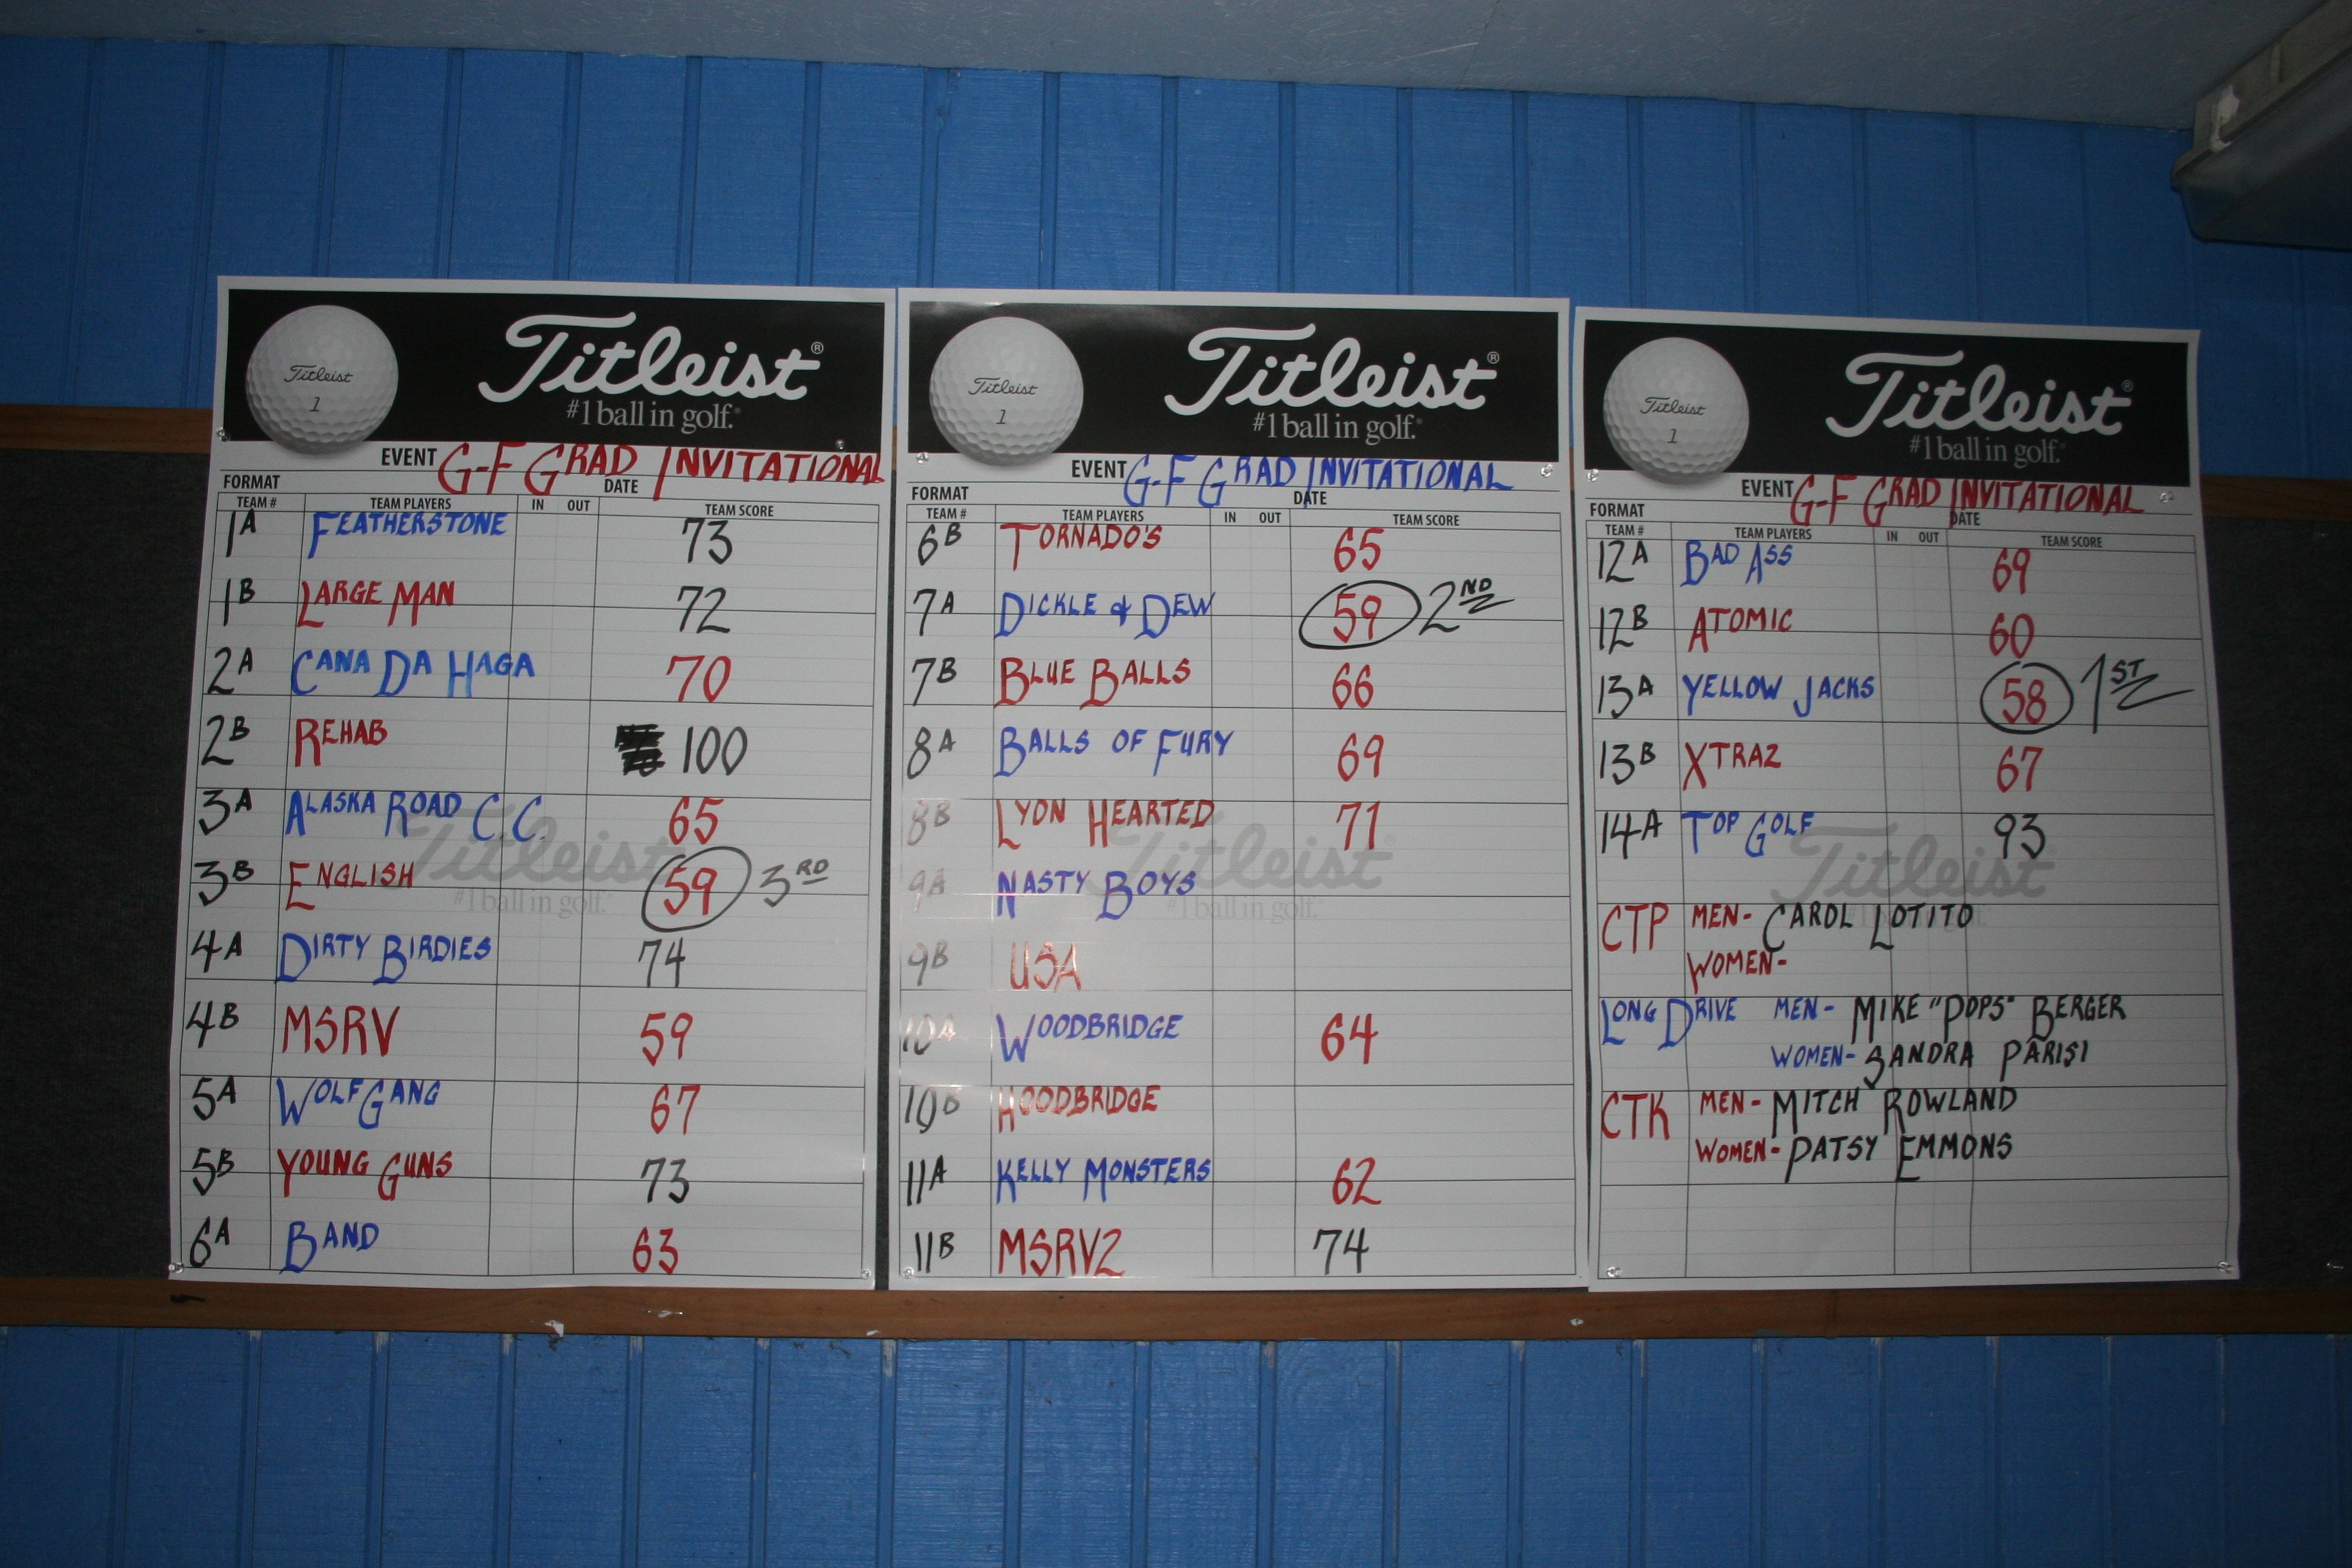 Titleist®
#1 ball in golf.
Titleist
1
EVENT G-F GRAD INVITATIONAL
FORMAT DATE
TEAM # TEAM PLAYERS IN OUT TEAM SCORE
1A FEATHERSTONE 73
1B LARGE MAN 72
2A CANA DA HAGA 70
2B REHAB 100
3A ALASKA ROAD C.C. 65
Titleist
3B ENGLISH 59 3RD
#1 ball in golf.
4A DIRTY BIRDIES 74
4B MSRV 59
5A WOLFGANG 67
5B YOUNG GUNS 73
6A BAND 63
Titleist®
#1 ball in golf.
Titleist
1
EVENT G-F GRAD INVITATIONAL
FORMAT DATE
TEAM # TEAM PLAYERS IN OUT TEAM SCORE
6B TORNADO'S 65
7A DICKLE & DEW 59 2ND
7B BLUE BALLS 66
8A BALLS OF FURY 69
8B LYON HEARTED 71
Titleist
9A NASTY BOYS
#1 ball in golf.
9B USA
10A WOODBRIDGE 64
10B HOODBRIDGE
11A KELLY MONSTERS 62
11B MSRV2 74
Titleist®
#1 ball in golf.
Titleist
1
EVENT G-F GRAD INVITATIONAL
FORMAT DATE
TEAM # TEAM PLAYERS IN OUT TEAM SCORE
12A BAD ASS 69
12B ATOMIC 60
13A YELLOW JACKS 58 1ST
13B XTRAZ 67
14A TOP GOLF 93
Titleist
#1 ball in golf.
CTP MEN- CAROL LOTITO
WOMEN-
LONG DRIVE MEN- MIKE "POPS" BERGER
WOMEN- SANDRA PARISI
CTK MEN- MITCH ROWLAND
WOMEN- PATSY EMMONS